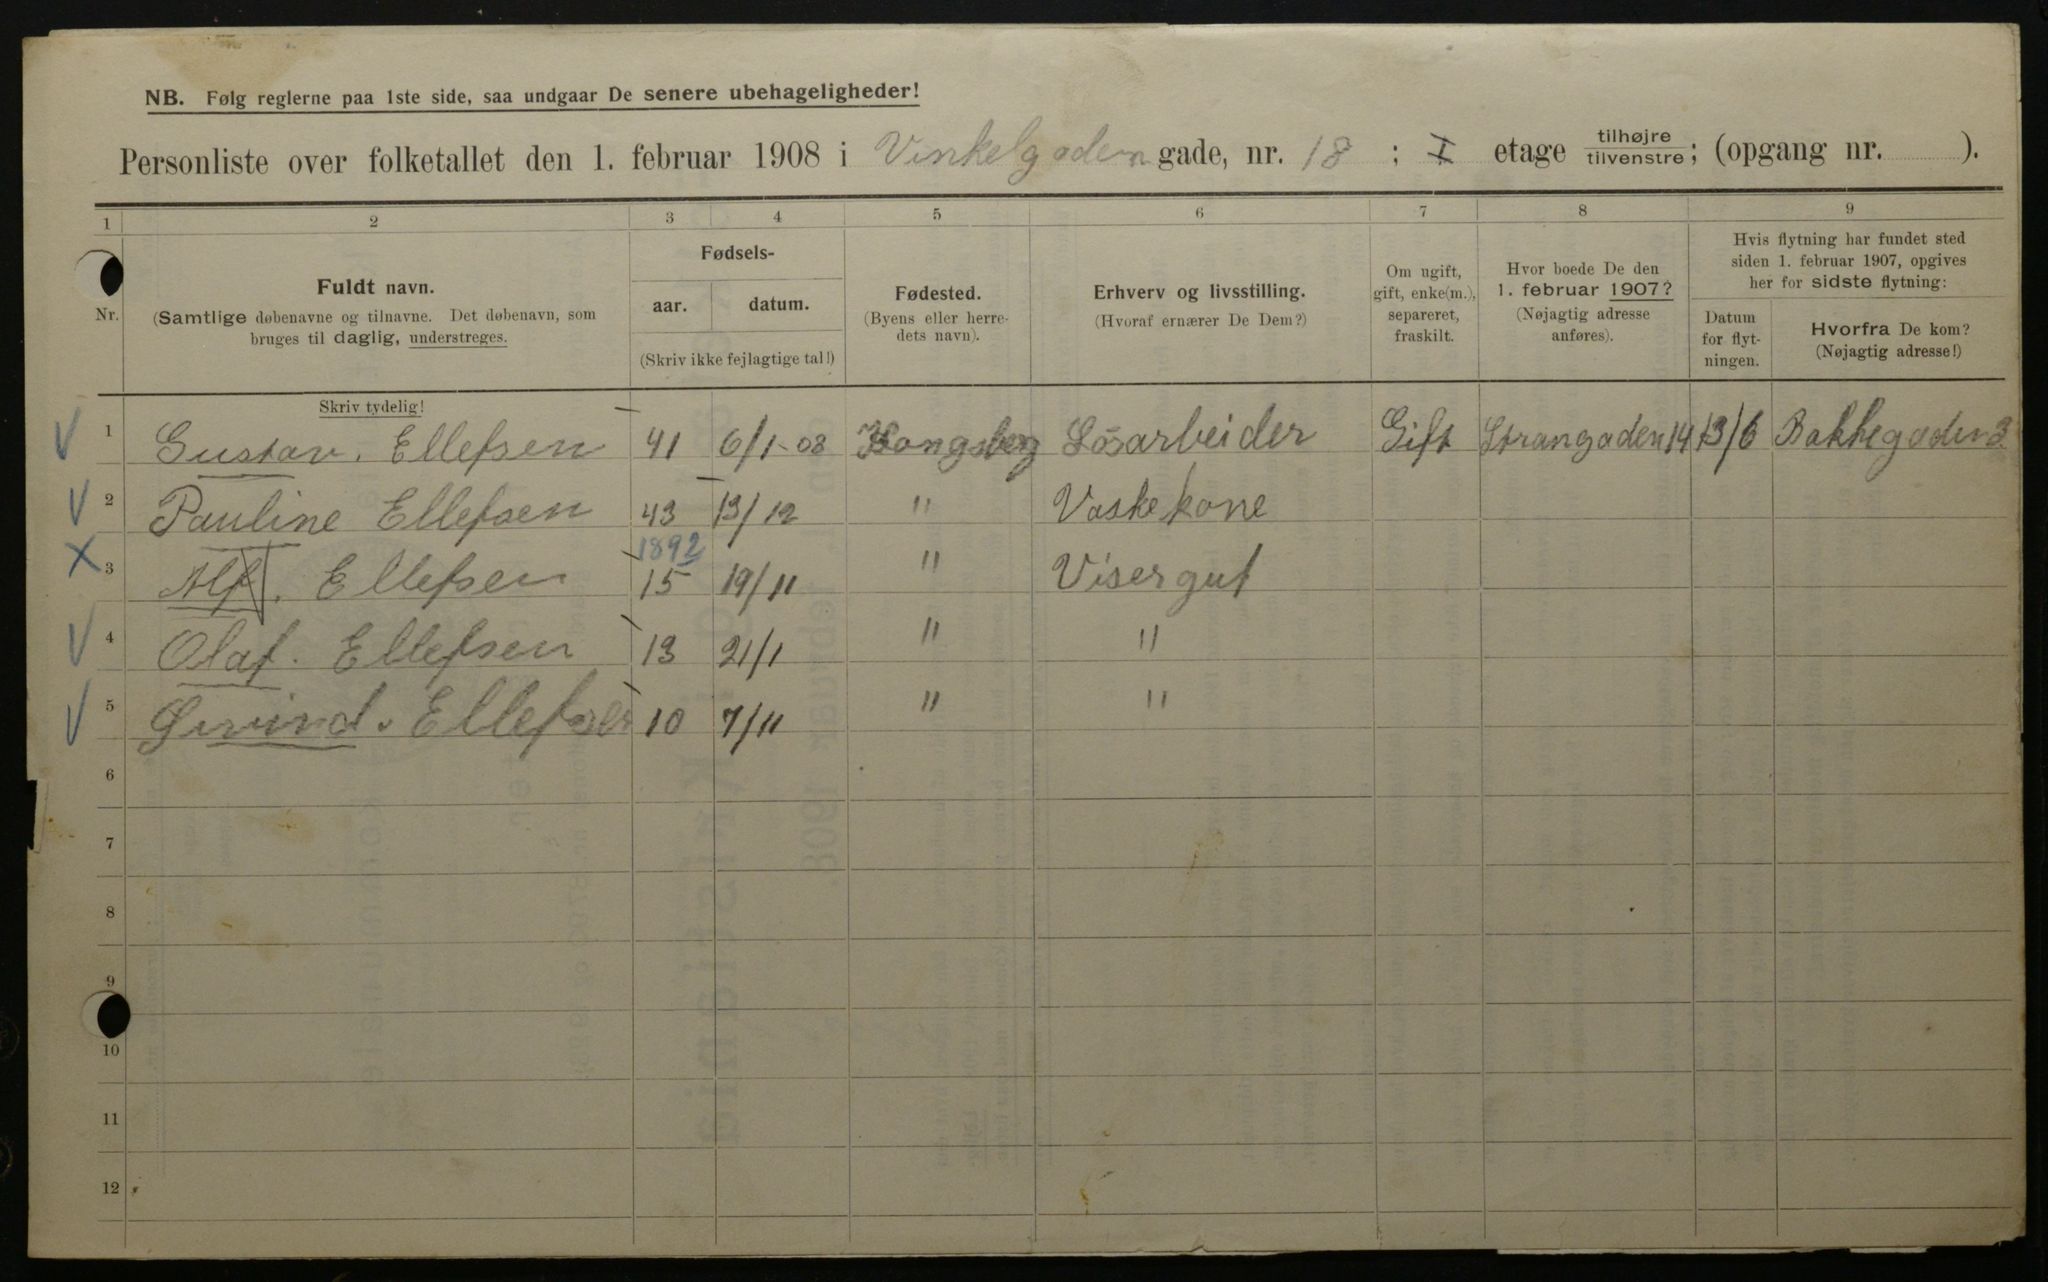 NB. Følg reglerne paa 1ste side, saa undgaar De senere ubehageligheder!
Personliste over folketallet den 1. februar 1908 i Vinkelgaden gade, nr. 18 ; I etage tilhøjre/tilvenstre; (opgang nr. ).
1 2 3 4 5 6 7 8 9
Nr.
Fuldt navn.
(Samtlige døbenavne og tilnavne. Det døbenavn, som
bruges til daglig, understreges.
Skriv tydelig!
Fødsels-
aar. datum.
(Skriv ikke fejlagtige tal!)
Fødested.
(Byens eller herre-
dets navn).
Erhverv og livsstilling.
(Hvoraf ernærer De Dem?)
Om ugift,
gift, enke(m.),
separeret,
fraskilt.
Hvor boede De den
1. februar 1907?
(Nøjagtig adresse
anføres).
Hvis flytning har fundet sted
siden 1. februar 1907, opgives
her for sidste flytning:
Datum
for flyt-
ningen.
Hvorfra De kom?
(Nøjagtig adresse!)
1 Gustav. Ellefsen 41 6/1-08 Kongsberg Løsarbeider Gift Strangaden 14 13/6 Bakkegaden 3
2 Pauline Ellefsen 43 13/12 " Vaskekone
1892
3 Alf. Ellefsen 15 19/11 " Visergut
4 Olaf. Ellefsen 13 21/1 " "
5 Øivind. Ellefsen 10 7/11 " "
6
7
8
9
10
11
12